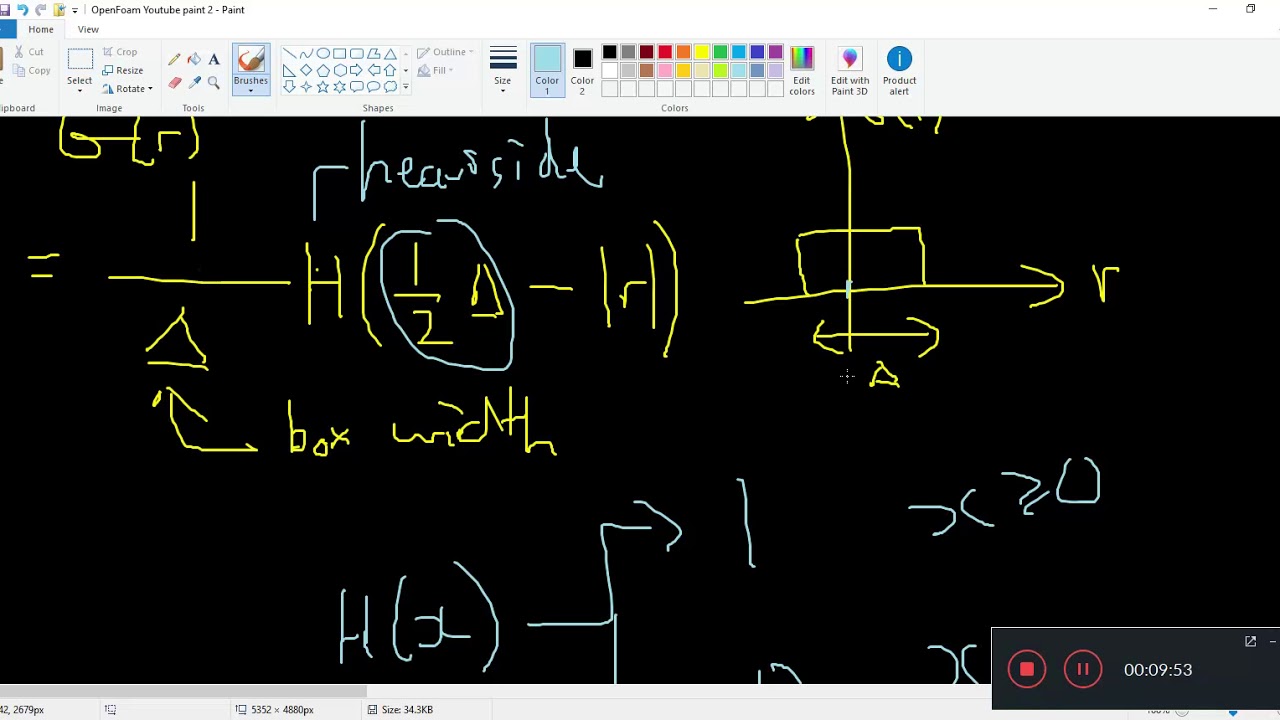 OpenFoam Youtube paint 2 - Paint
Home View
Cut
Copy
lipboard
Select
Crop
Resize
Rotate
Image
Tools
Brushes
Shapes
Outline
Fill
Size
Color 1
Color 2
Colors
Edit colors
Edit with Paint 3D
Product alert
G(r)
heaviside
= 1/Δ H(1/2 Δ - |r|)
r
Δ
box width
x ≥ 0
1
H(x)
x
00:09:53
42, 2679px
5352 × 4880px
Size: 34.3KB
100%